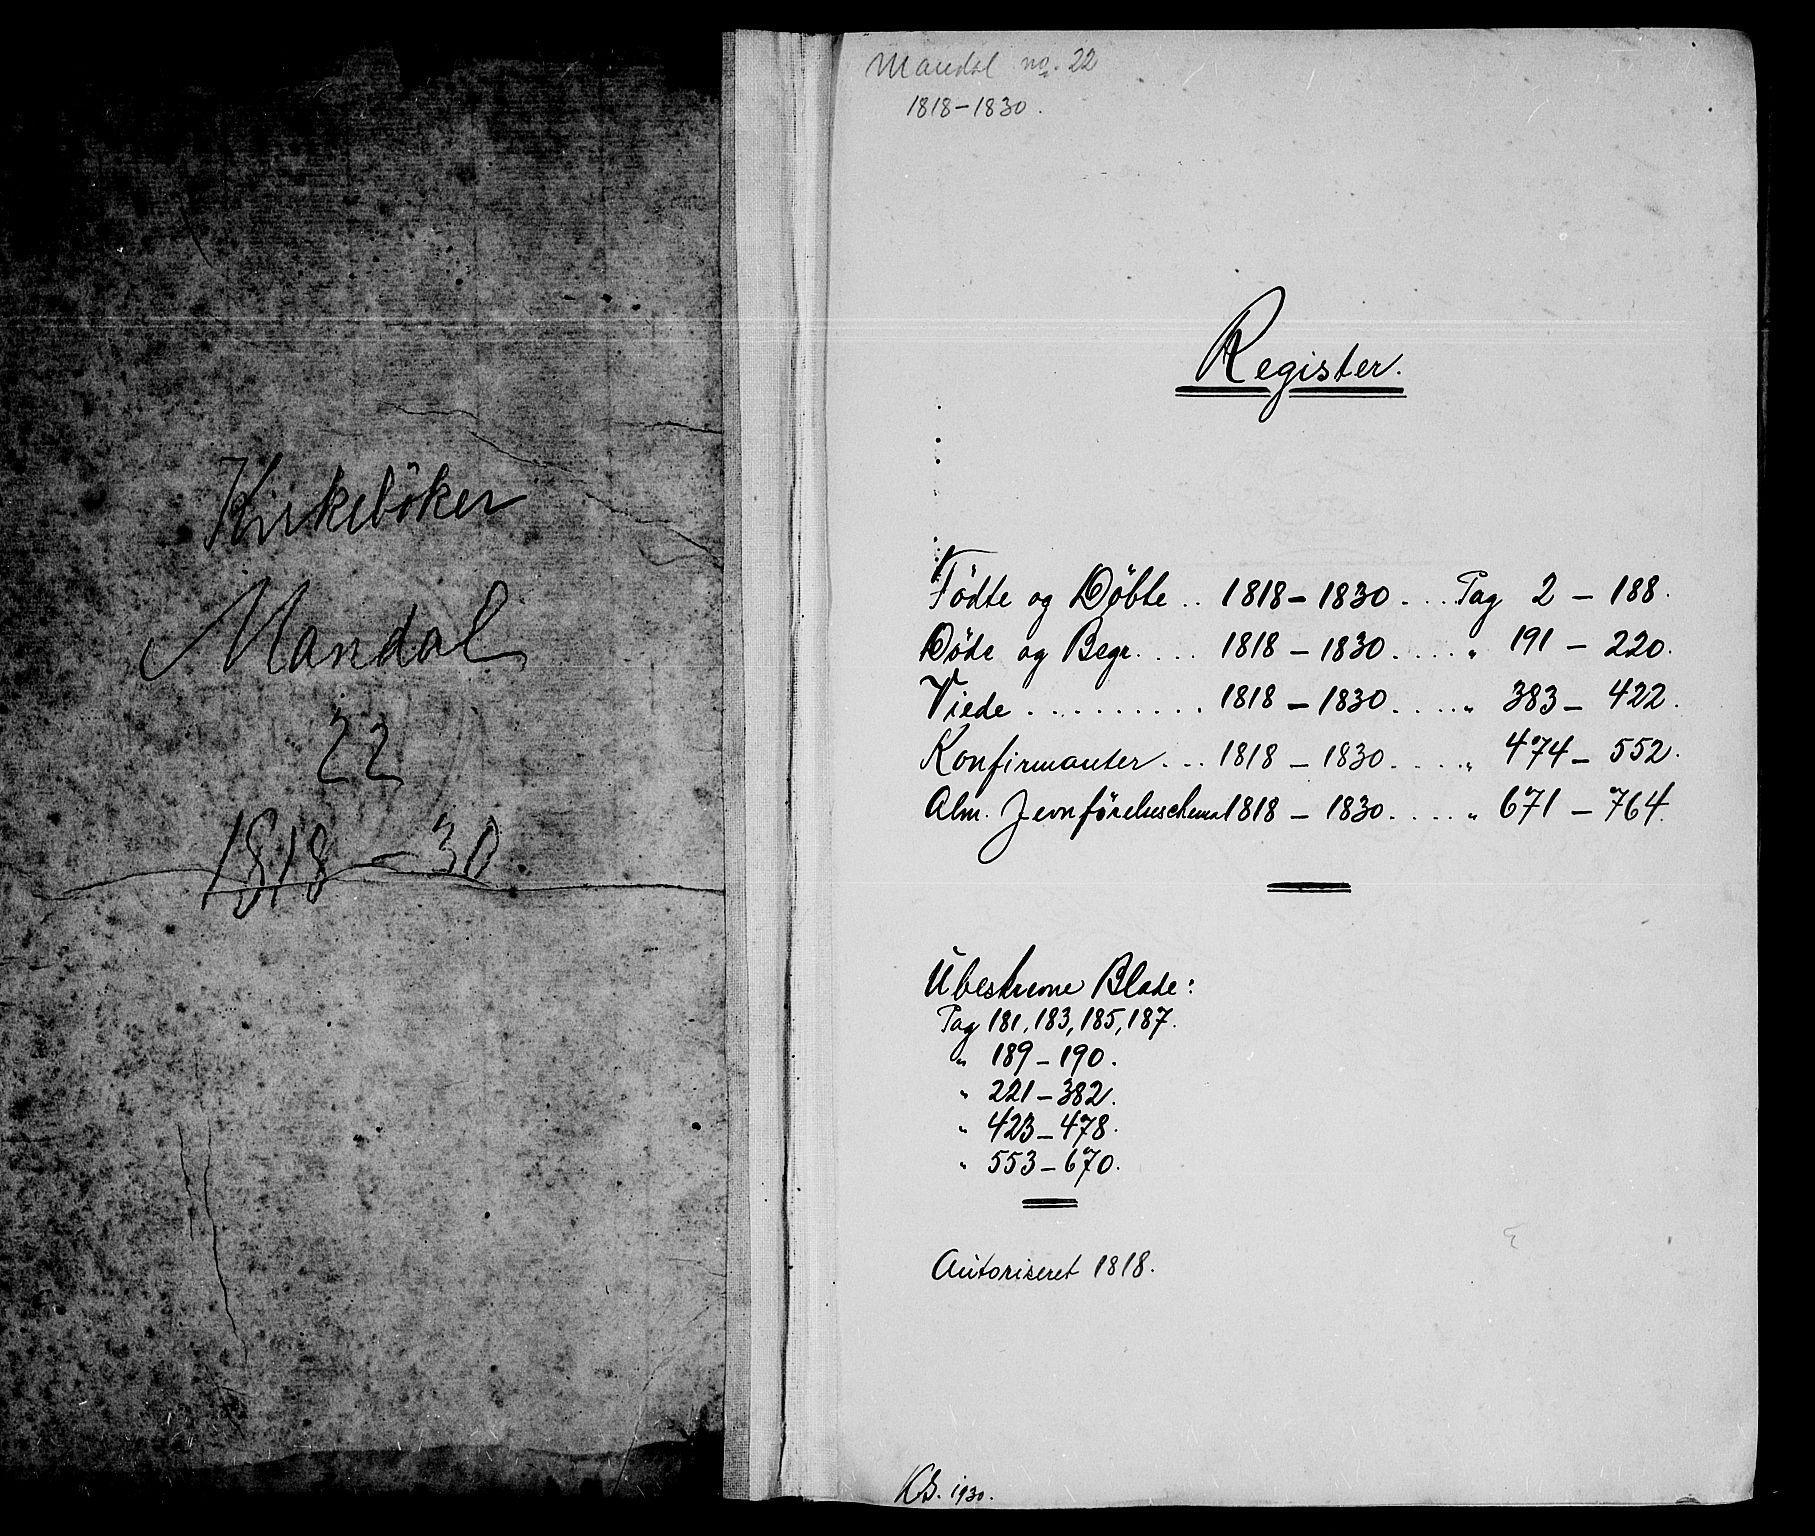 Kirkeböker
Mandal
22
1818-30
Mandal no. 22
1818-1830.
Register.
Födte og Döbte .. 1818-1830. ... Pag 2 - 188.
Döde og Begr. ... 1818-1830. .... " 191 - 220.
Viede .......... 1818-1830. .... " 383 - 422.
Konfirmanter ... 1818-1830. .... " 474 - 552.
Alm. Jevnförelseschema 1818-1830. .... " 671 - 764.
Ubeskrevne Blade:
Pag 181, 183, 185, 187.
" 189-190.
" 221-382.
" 423-478.
" 553-670.
Autoriseret 1818.
KB. 1930.